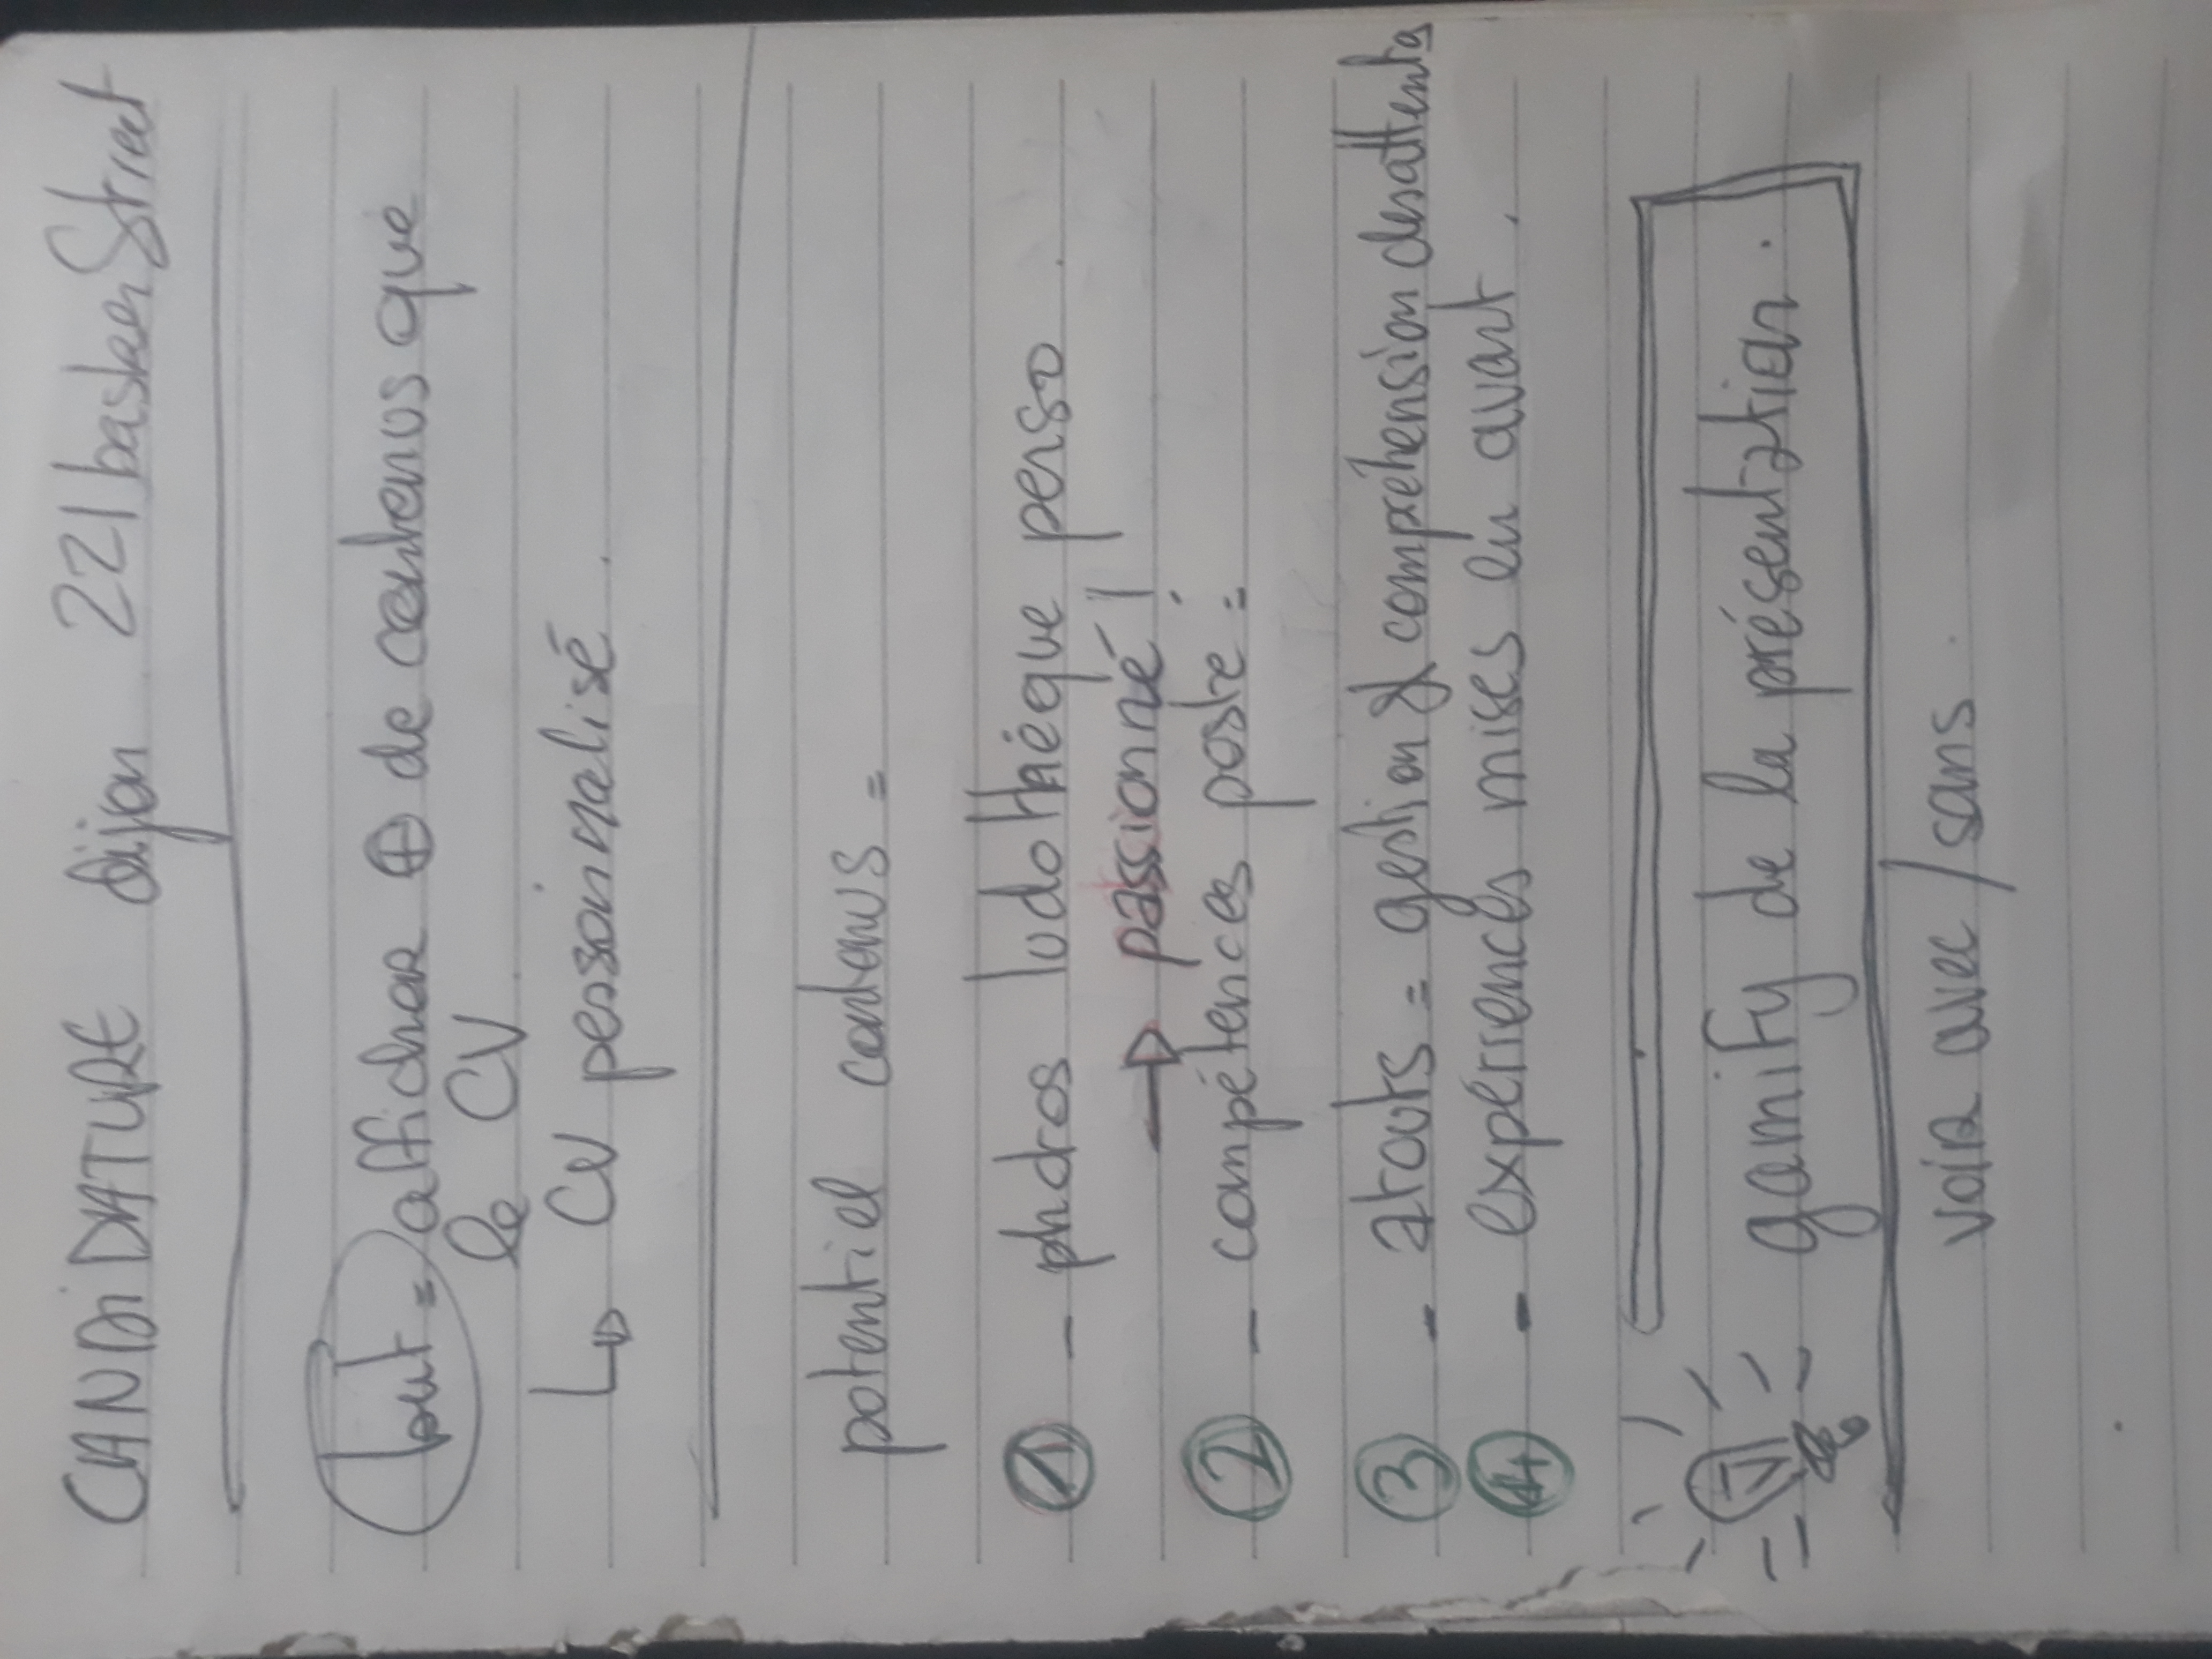 CANDIDATURE dijon 221 basker Street
but = afficher ⊕ de contenus que
le CV
↳ CV personnalisé.
potentiel contenus =
① - photos ludothèque perso.
→ passionné !
② - compétences poste :
③ - atouts = gestion & compréhension des attentes
④ - expériences mises en avant.
gamify de la présentation.
voir avec / sans.